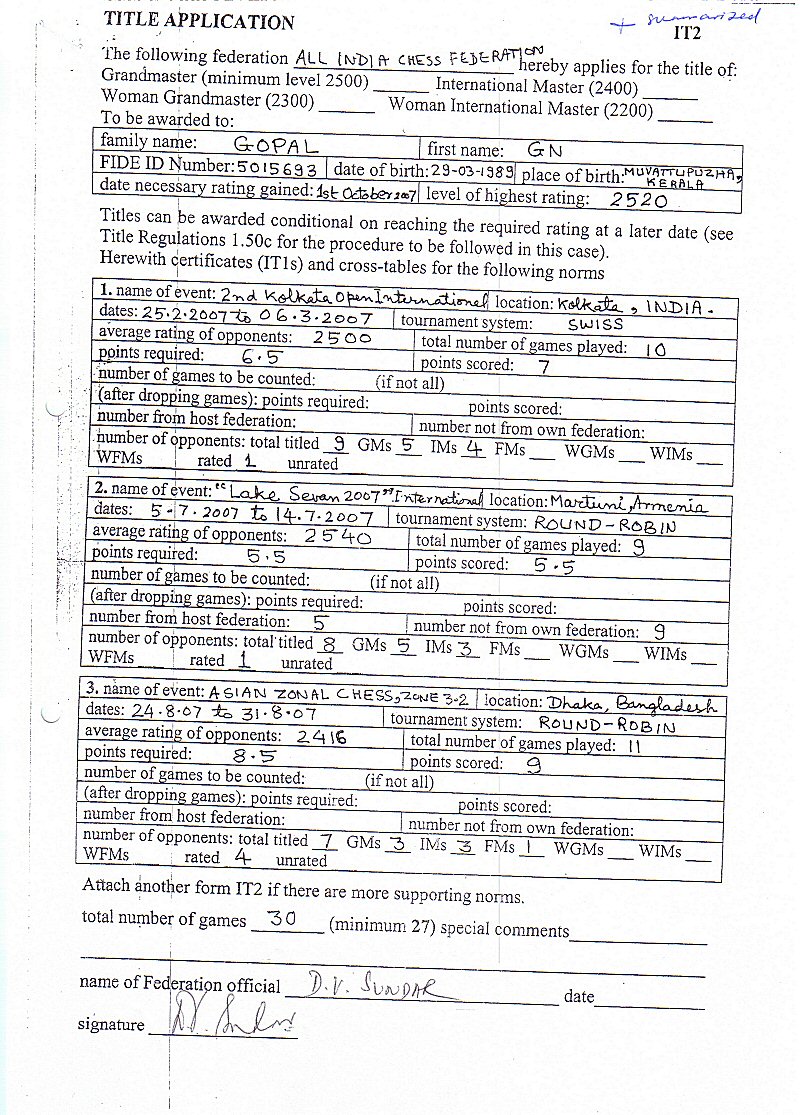 TITLE APPLICATION
+ summarized
IT2
The following federation ALL INDIA CHESS FEDERATION hereby applies for the title of:
Grandmaster (minimum level 2500) ______ International Master (2400) ______
Woman Grandmaster (2300) ______ Woman International Master (2200) ______
To be awarded to:
family name: GOPAL first name: GN
FIDE ID Number: 5015693 date of birth: 29-03-1989 place of birth: MUVATTUPUZHA, KERALA
date necessary rating gained: 1st October 2007 level of highest rating: 2520
Titles can be awarded conditional on reaching the required rating at a later date (see
Title Regulations 1.50c for the procedure to be followed in this case).
Herewith certificates (IT1s) and cross-tables for the following norms
1. name of event: 2nd Kolkata Open International location: Kolkata, INDIA.
dates: 25.2.2007 to 06.3.2007 tournament system: SWISS
average rating of opponents: 2500 total number of games played: 10
points required: 6.5 points scored: 7
number of games to be counted: (if not all)
(after dropping games): points required: points scored:
number from host federation: number not from own federation:
number of opponents: total titled 9 GMs 5 IMs 4 FMs ___ WGMs ___ WIMs ___
WFMs ___ rated 1 unrated
2. name of event: "Lake Sevan 2007" International location: Martuni, Armenia
dates: 5.7.2007 to 14.7.2007 tournament system: ROUND-ROBIN
average rating of opponents: 2540 total number of games played: 9
points required: 5.5 points scored: 5.5
number of games to be counted: (if not all)
(after dropping games): points required: points scored:
number from host federation: 5 number not from own federation: 9
number of opponents: total titled 8 GMs 5 IMs 3 FMs ___ WGMs ___ WIMs ___
WFMs ___ rated 1 unrated
3. name of event: ASIAN ZONAL CHESS, ZONE 3-2 location: Dhaka, Bangladesh
dates: 24.8.07 to 31.8.07 tournament system: ROUND-ROBIN
average rating of opponents: 2416 total number of games played: 11
points required: 8.5 points scored: 9
number of games to be counted: (if not all)
(after dropping games): points required: points scored:
number from host federation: number not from own federation:
number of opponents: total titled 7 GMs 3 IMs 3 FMs 1 WGMs ___ WIMs ___
WFMs ___ rated 4 unrated
Attach another form IT2 if there are more supporting norms.
total number of games 30 (minimum 27) special comments
name of Federation official D.V. SUNDAR date
signature D.V. Sundar